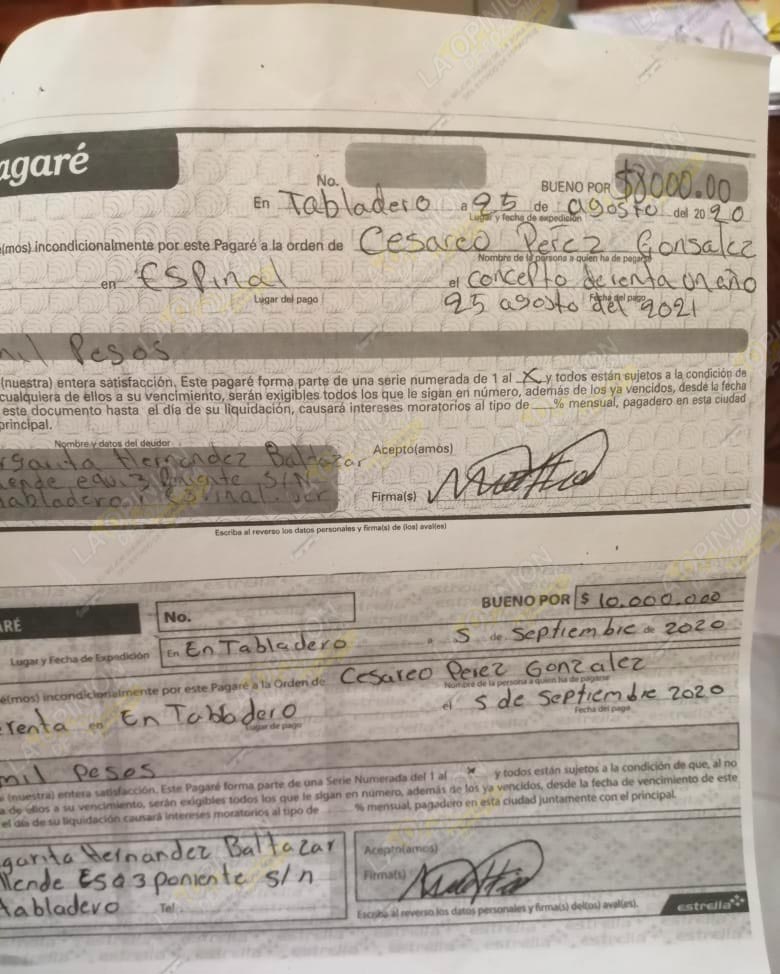 agaré
No.
BUENO POR $8000.00
En Tabladero a 25 de agosto del 2020
Lugar y fecha de expedición
(mos) incondicionalmente por este Pagaré a la orden de Cesareo Perez Gonsalez
Nombre de la persona a quien ha de pagarse
en ESPinal el concepto de renta un año
Lugar del pago Fecha del pago
25 agosto del 2021
mil Pesos
(nuestra) entera satisfacción. Este pagaré forma parte de una serie numerada de 1 al X y todos están sujetos a la condición de
cualquiera de ellos a su vencimiento, serán exigibles todos los que le sigan en número, además de los ya vencidos, desde la fecha
este documento hasta el día de su liquidación, causará intereses moratorios al tipo de ___% mensual, pagadero en esta ciudad
principal.
Nombre y datos del deudor
Hernandez Baltazar Acepto(amos)
3 Poniente S/N
abladero, Espinal. ver Firma(s)
Escriba al reverso los datos personales y firma(s) de (los) aval(es)
ARÉ No. BUENO POR $ 10.000.000
Lugar y Fecha de Expedición En En Tabladero a 5 de septiembre de 2020
(mos) incondicionalmente por este Pagaré a la Orden de Cesareo Perez Gonzalez
Nombre de la persona a quien ha de pagarse
renta en En Tabladero el 5 de septiembre 2020
Lugar de pago Fecha del pago
mil pesos
(nuestra) entera satisfacción. Este Pagaré forma parte de una Serie Numerada del 1 al y todos están sujetos a la condición de que, al no
a de ellos a su vencimiento, serán exigibles todos los que le sigan en número, además de los ya vencidos, desde la fecha de vencimiento de este
el día de su liquidación causará intereses moratorios al tipo de % mensual, pagadero en esta ciudad juntamente con el principal.
garita Hernandez Baltazar Acepto(amos)
llende ESQ 3 poniente s/n Firma(s)
tabladero Tel
Escriba al reverso los datos personales y firma(s) del(os) aval(es).
estrella
LA OPINION